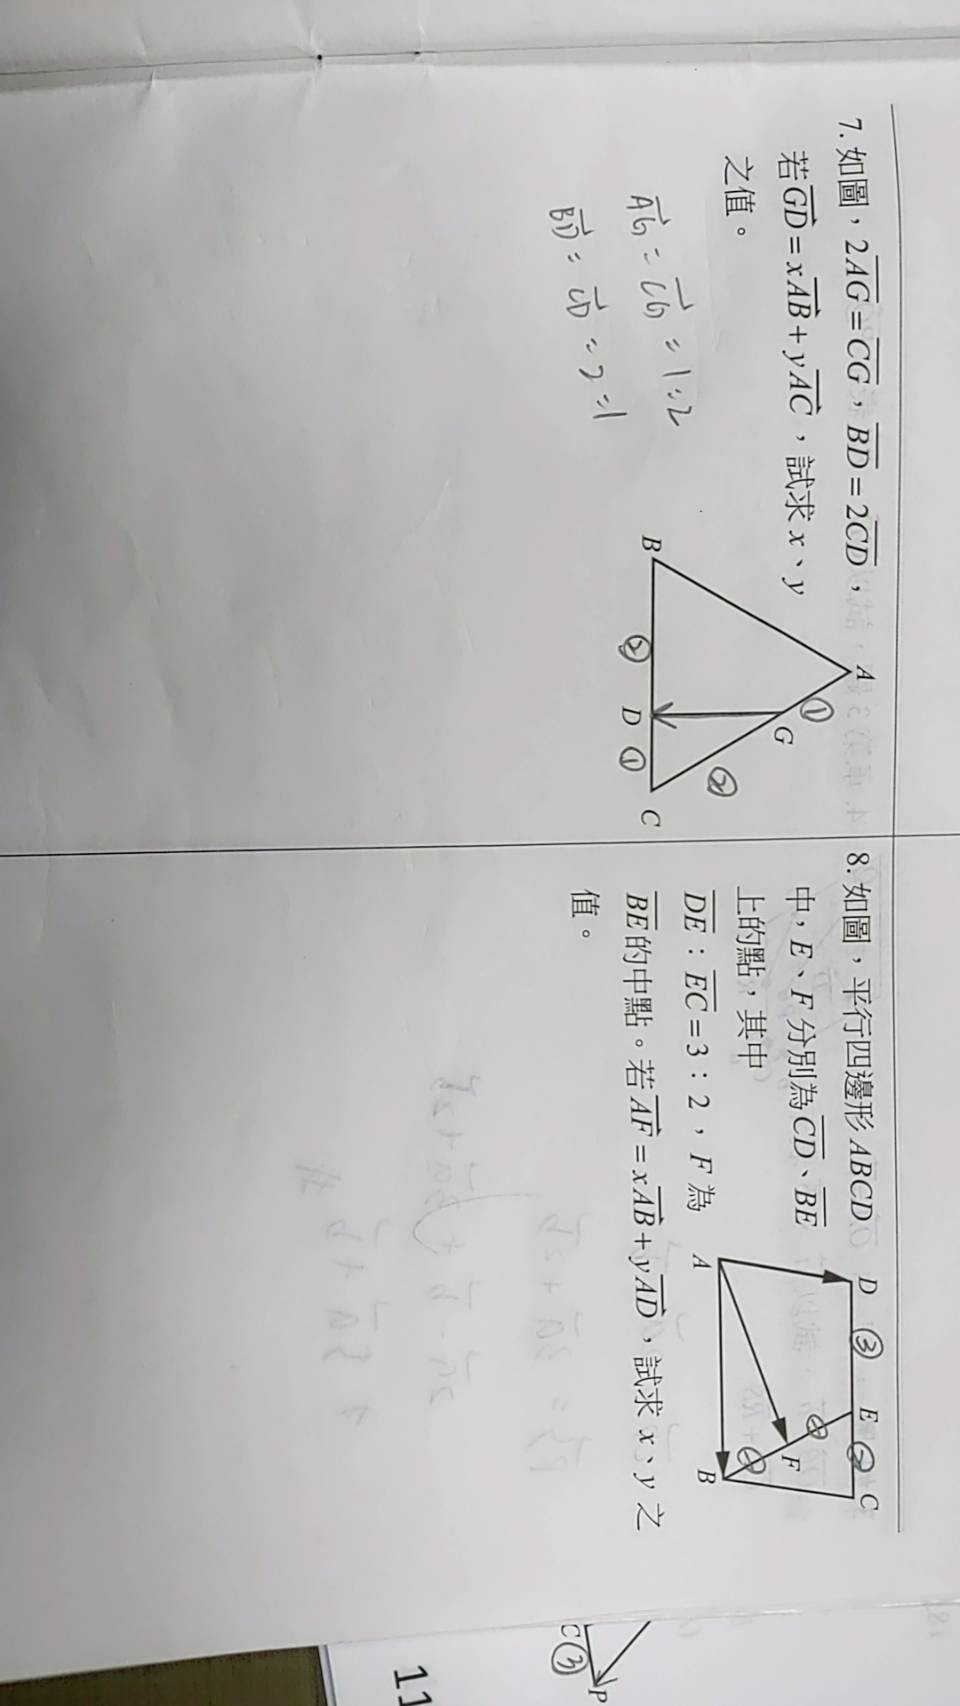 7. 如圖，2AG=CG，BD=2CD，
若GD=xAB+yAC，試求x、y
之值。
AG:CG=1:2
BD:CD=2:1
A
①
G
②
B
②
D
①
C
8. 如圖，平行四邊形ABCD
中，E、F分別為CD、BE
上的點，其中
DE：EC=3：2，F為
BE的中點。若AF=xAB+yAD，試求x、y之
值。
D
③
E
②
C
①
F
①
A
B
C
③
P
11